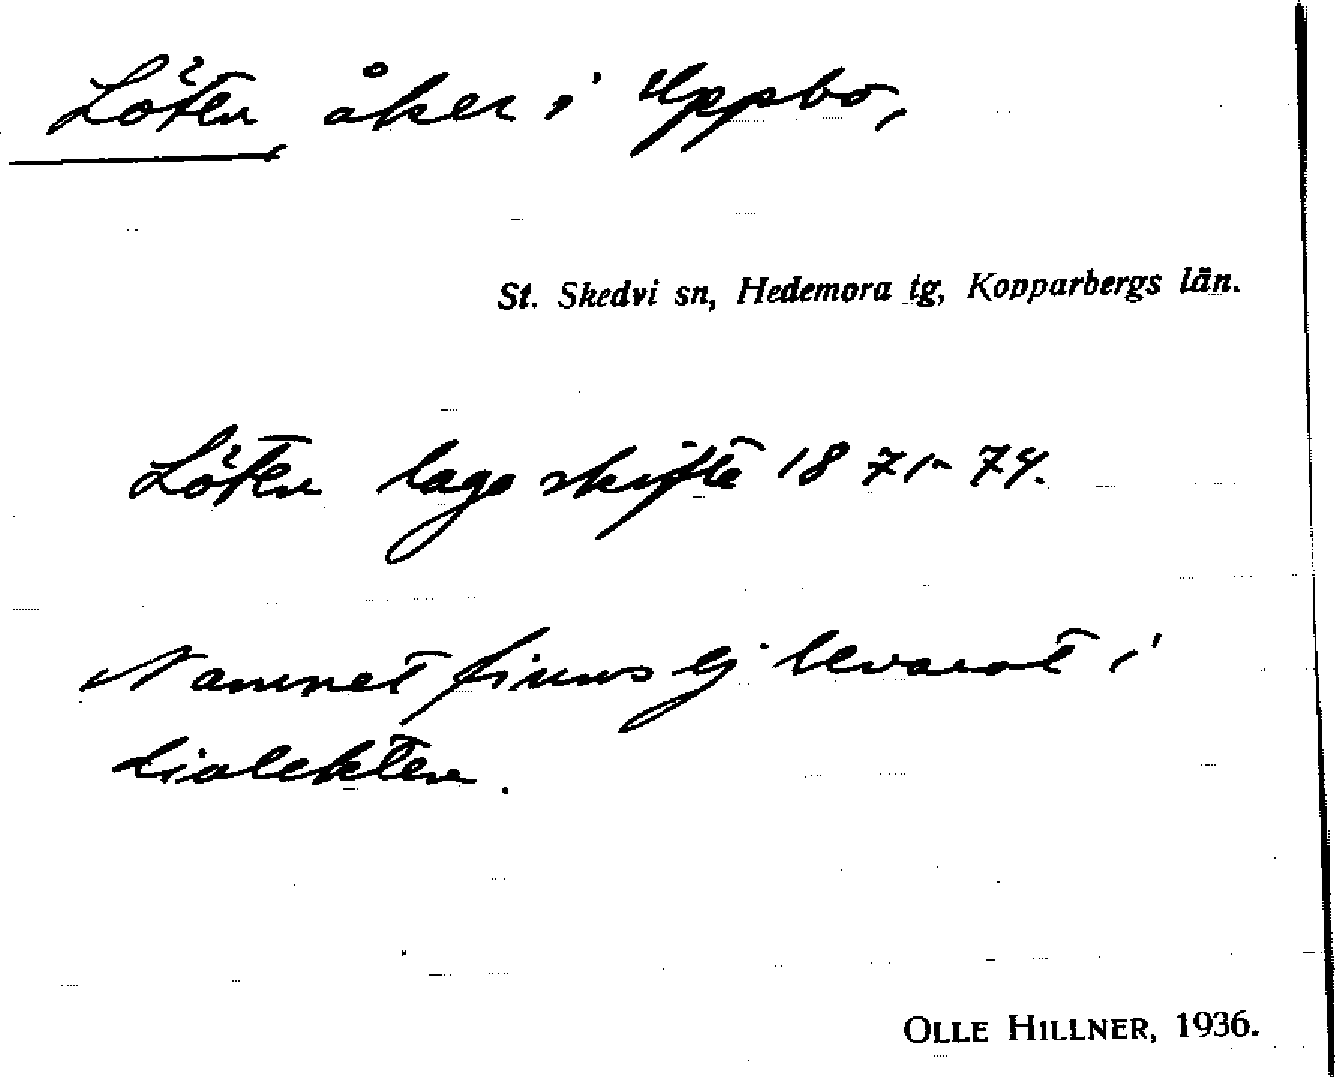 Löten åker i Uppbo,
St. Skedvi sn, Hedemora tg, Kopparbergs län.
Löten laga skifte 1871-74.
Namnet finns ej bevarat i
dialekten.
OLLE HILLNER, 1936.